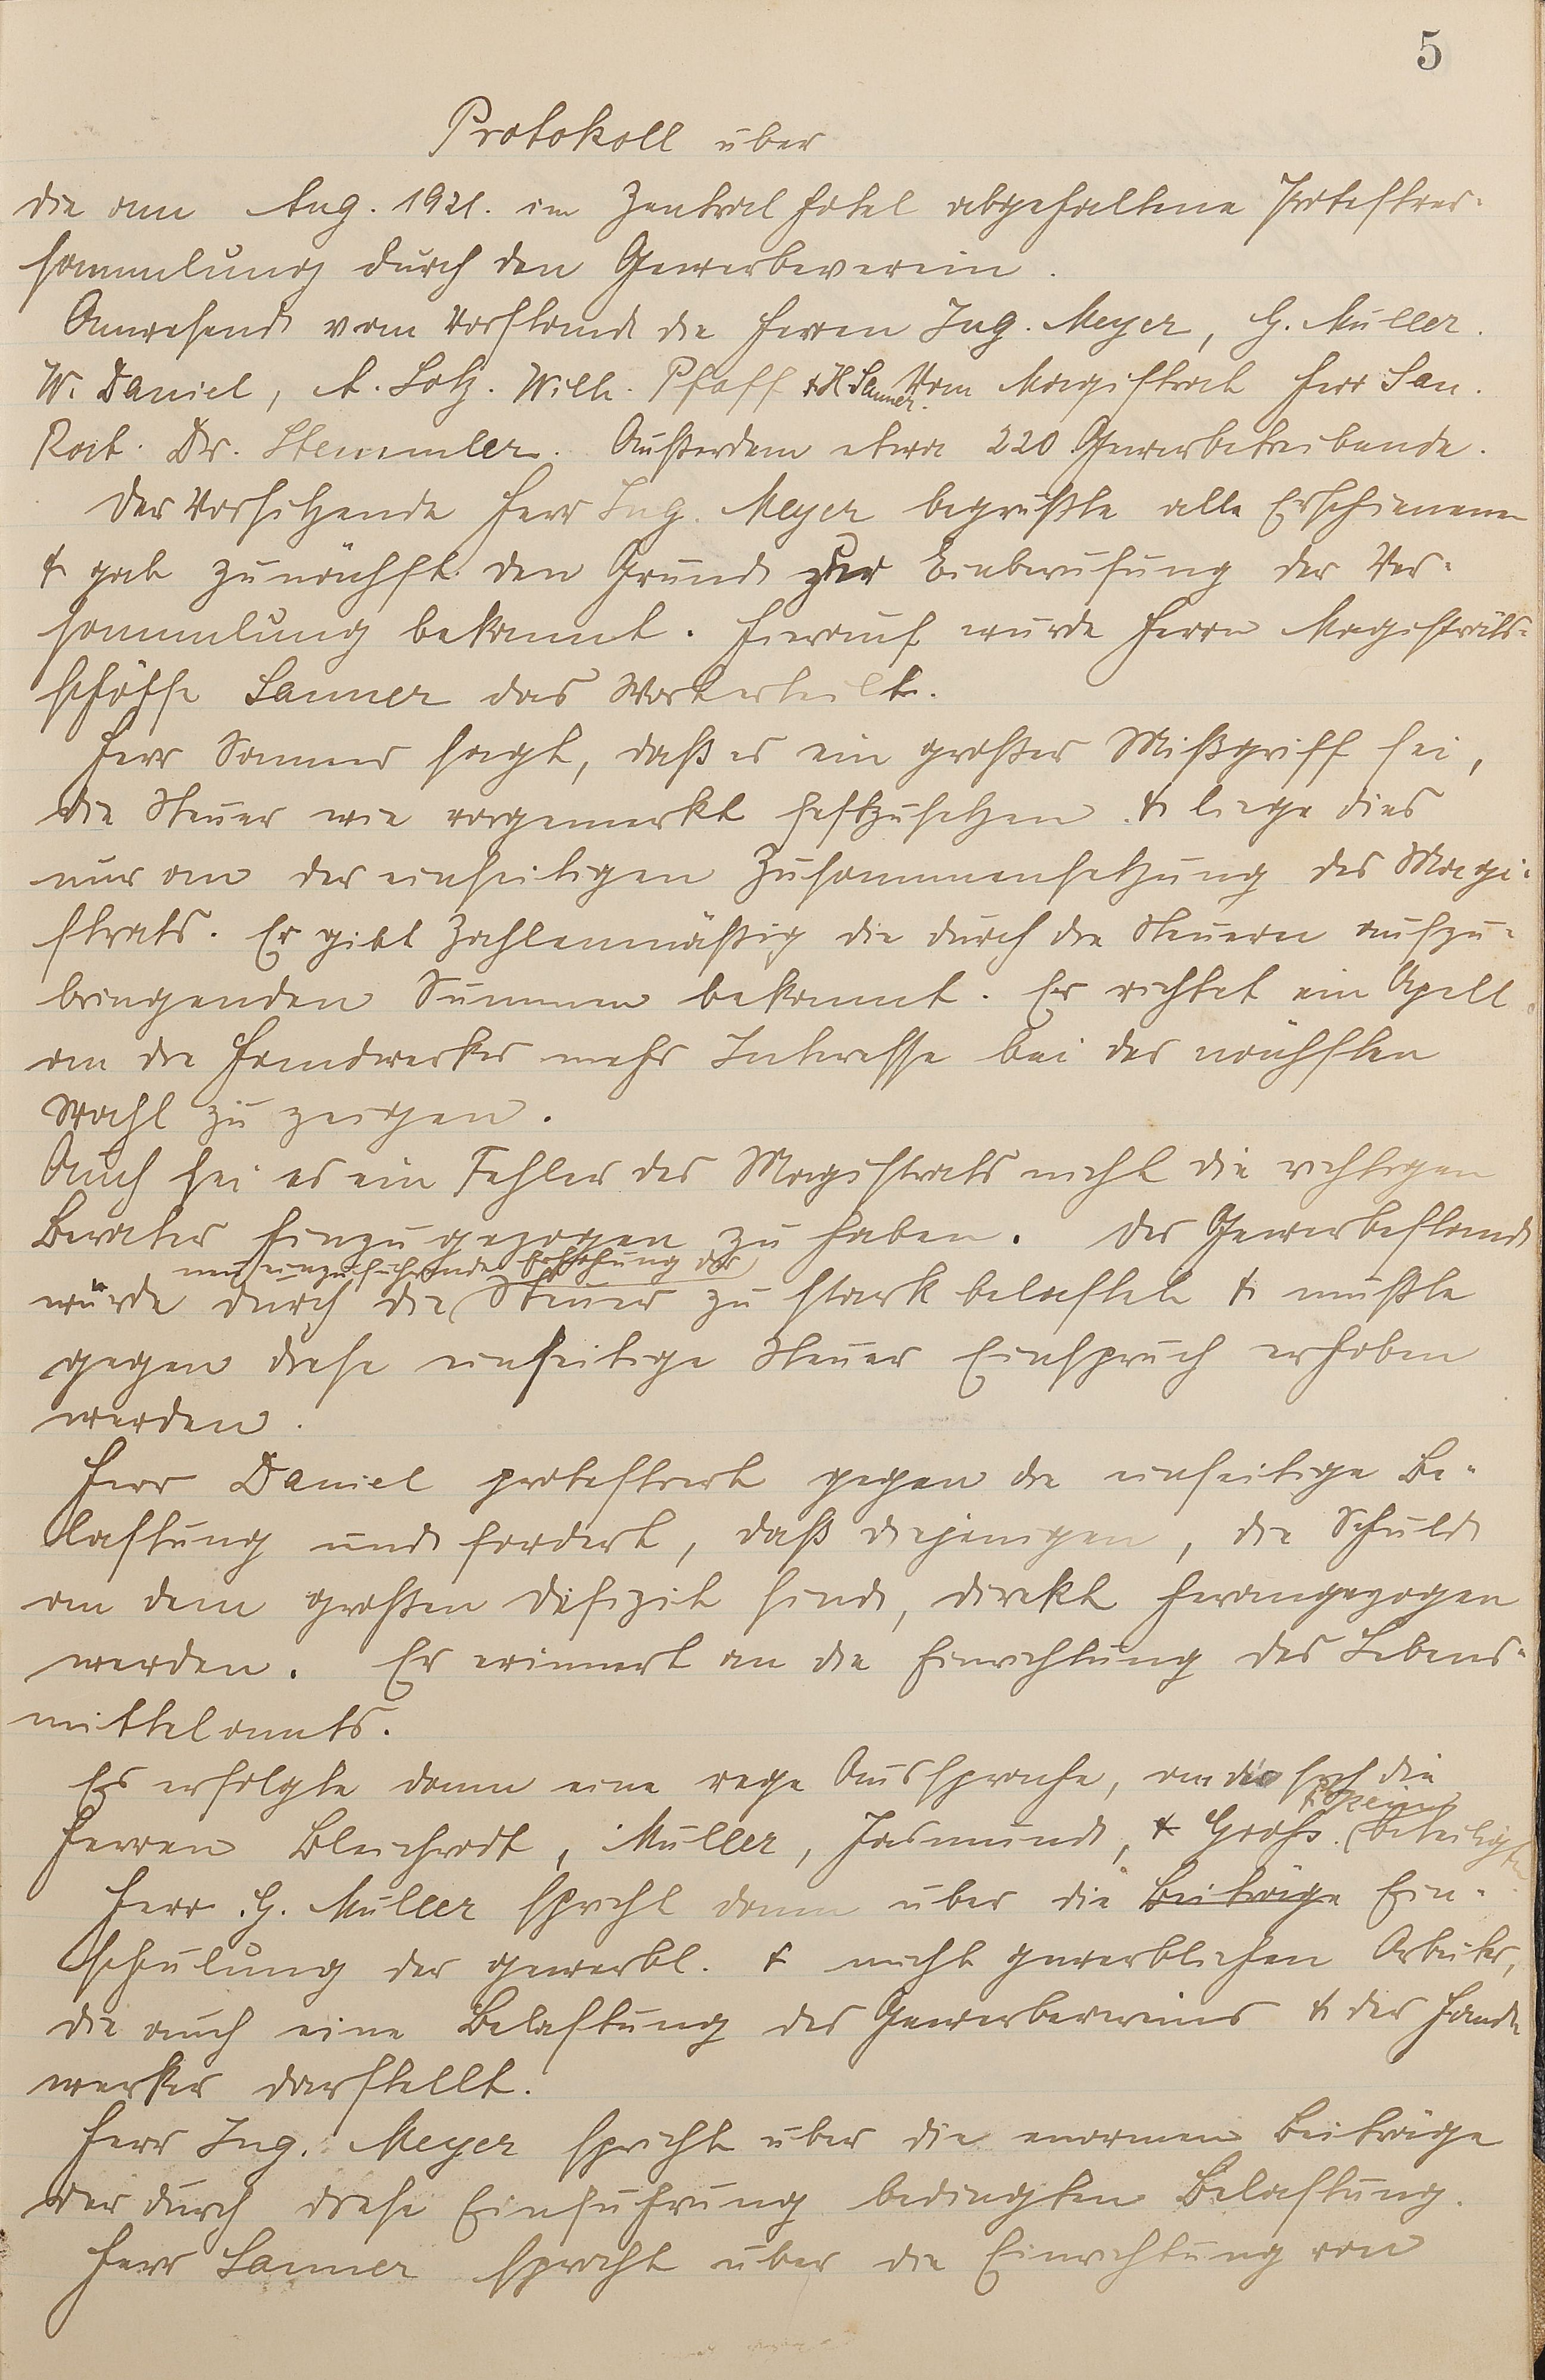 5
Protokoll über
die am Aug. 1921. im Zentral Hotel abgehaltene Protestver-
sammlung durch den Gewerbeverein.
Anwesend vom Vorstand die Herren Ing. Meyer, G. Müller.
W. Daniel, A. Lotz. Wilh. Pfaff & H. Sanner. Vom Magistrat Herr San.
Rat. Dr. Stemmler. Außerdem etwa 220 Gewerbetreibende.
Der Vorsitzende Herr Ing. Meyer begrüßte alle Erschienenen
& gab zunächst den Grund zur Einberufung der Ver-
sammlung bekannt. Hierauf wurde Herrn Magistrats-
schöffe Sanner das Wort erteilt.
Herr Sanner sagt, daß es ein großer Mißgriff sei,
die Steuer wie vorgemerkt festzusetzen & liege dies
nur an der einseitigen Zusammensetzung des Magi-
strats. Er gibt Zahlenmäßig die durch die Steuern aufzu-
bringenden Summen bekannt. Er richtet ein Apell
an die Handwerker mehr Interesse bei der nächsten
Wahl zu zeigen.
Auch sei es ein Fehler des Magistrats nicht die richtigen
Berater hinzugezogen zu haben. Der Gewerbestand
neu einzuführende Erhöhung der
würde durch die Steuer zu stark belastet & müßte
gegen diese einseitige Steuer Einspruch erhoben
werden.
Herr Daniel protestiert gegen die einseitige Be-
lastung und fordert, daß diejenigen, die Schuld
an dem großen Defizit sind, direkt herangezogen
werden. Er erinnert an die Einrichtung des Lebens-
mittelamts.
Es erfolgte dann eine rege Aussprache, an der sich die
Herren Bleichrodt, Müller, Jasmund, & Groß. beteiligten
Herr G. Müller spricht dann über die Beiträge Ein-
schulung der gewerbl. & nicht gewerblichen Arbeiter,
die auch eine Belastung des Gewerbevereins & der Hand-
werker darstellt.
Herr Ing. Meyer spricht über die enormen Beiträge
der durch diese Einführung bedingten Belastung.
Herr Sanner spricht über die Einrichtung von